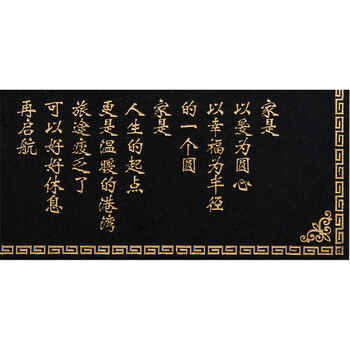 家是
以爱为圆心
以幸福为半径
的一个圆
家是
人生的起点
更是温暖的港湾
旅途疲乏了
可以好好休息
再启航